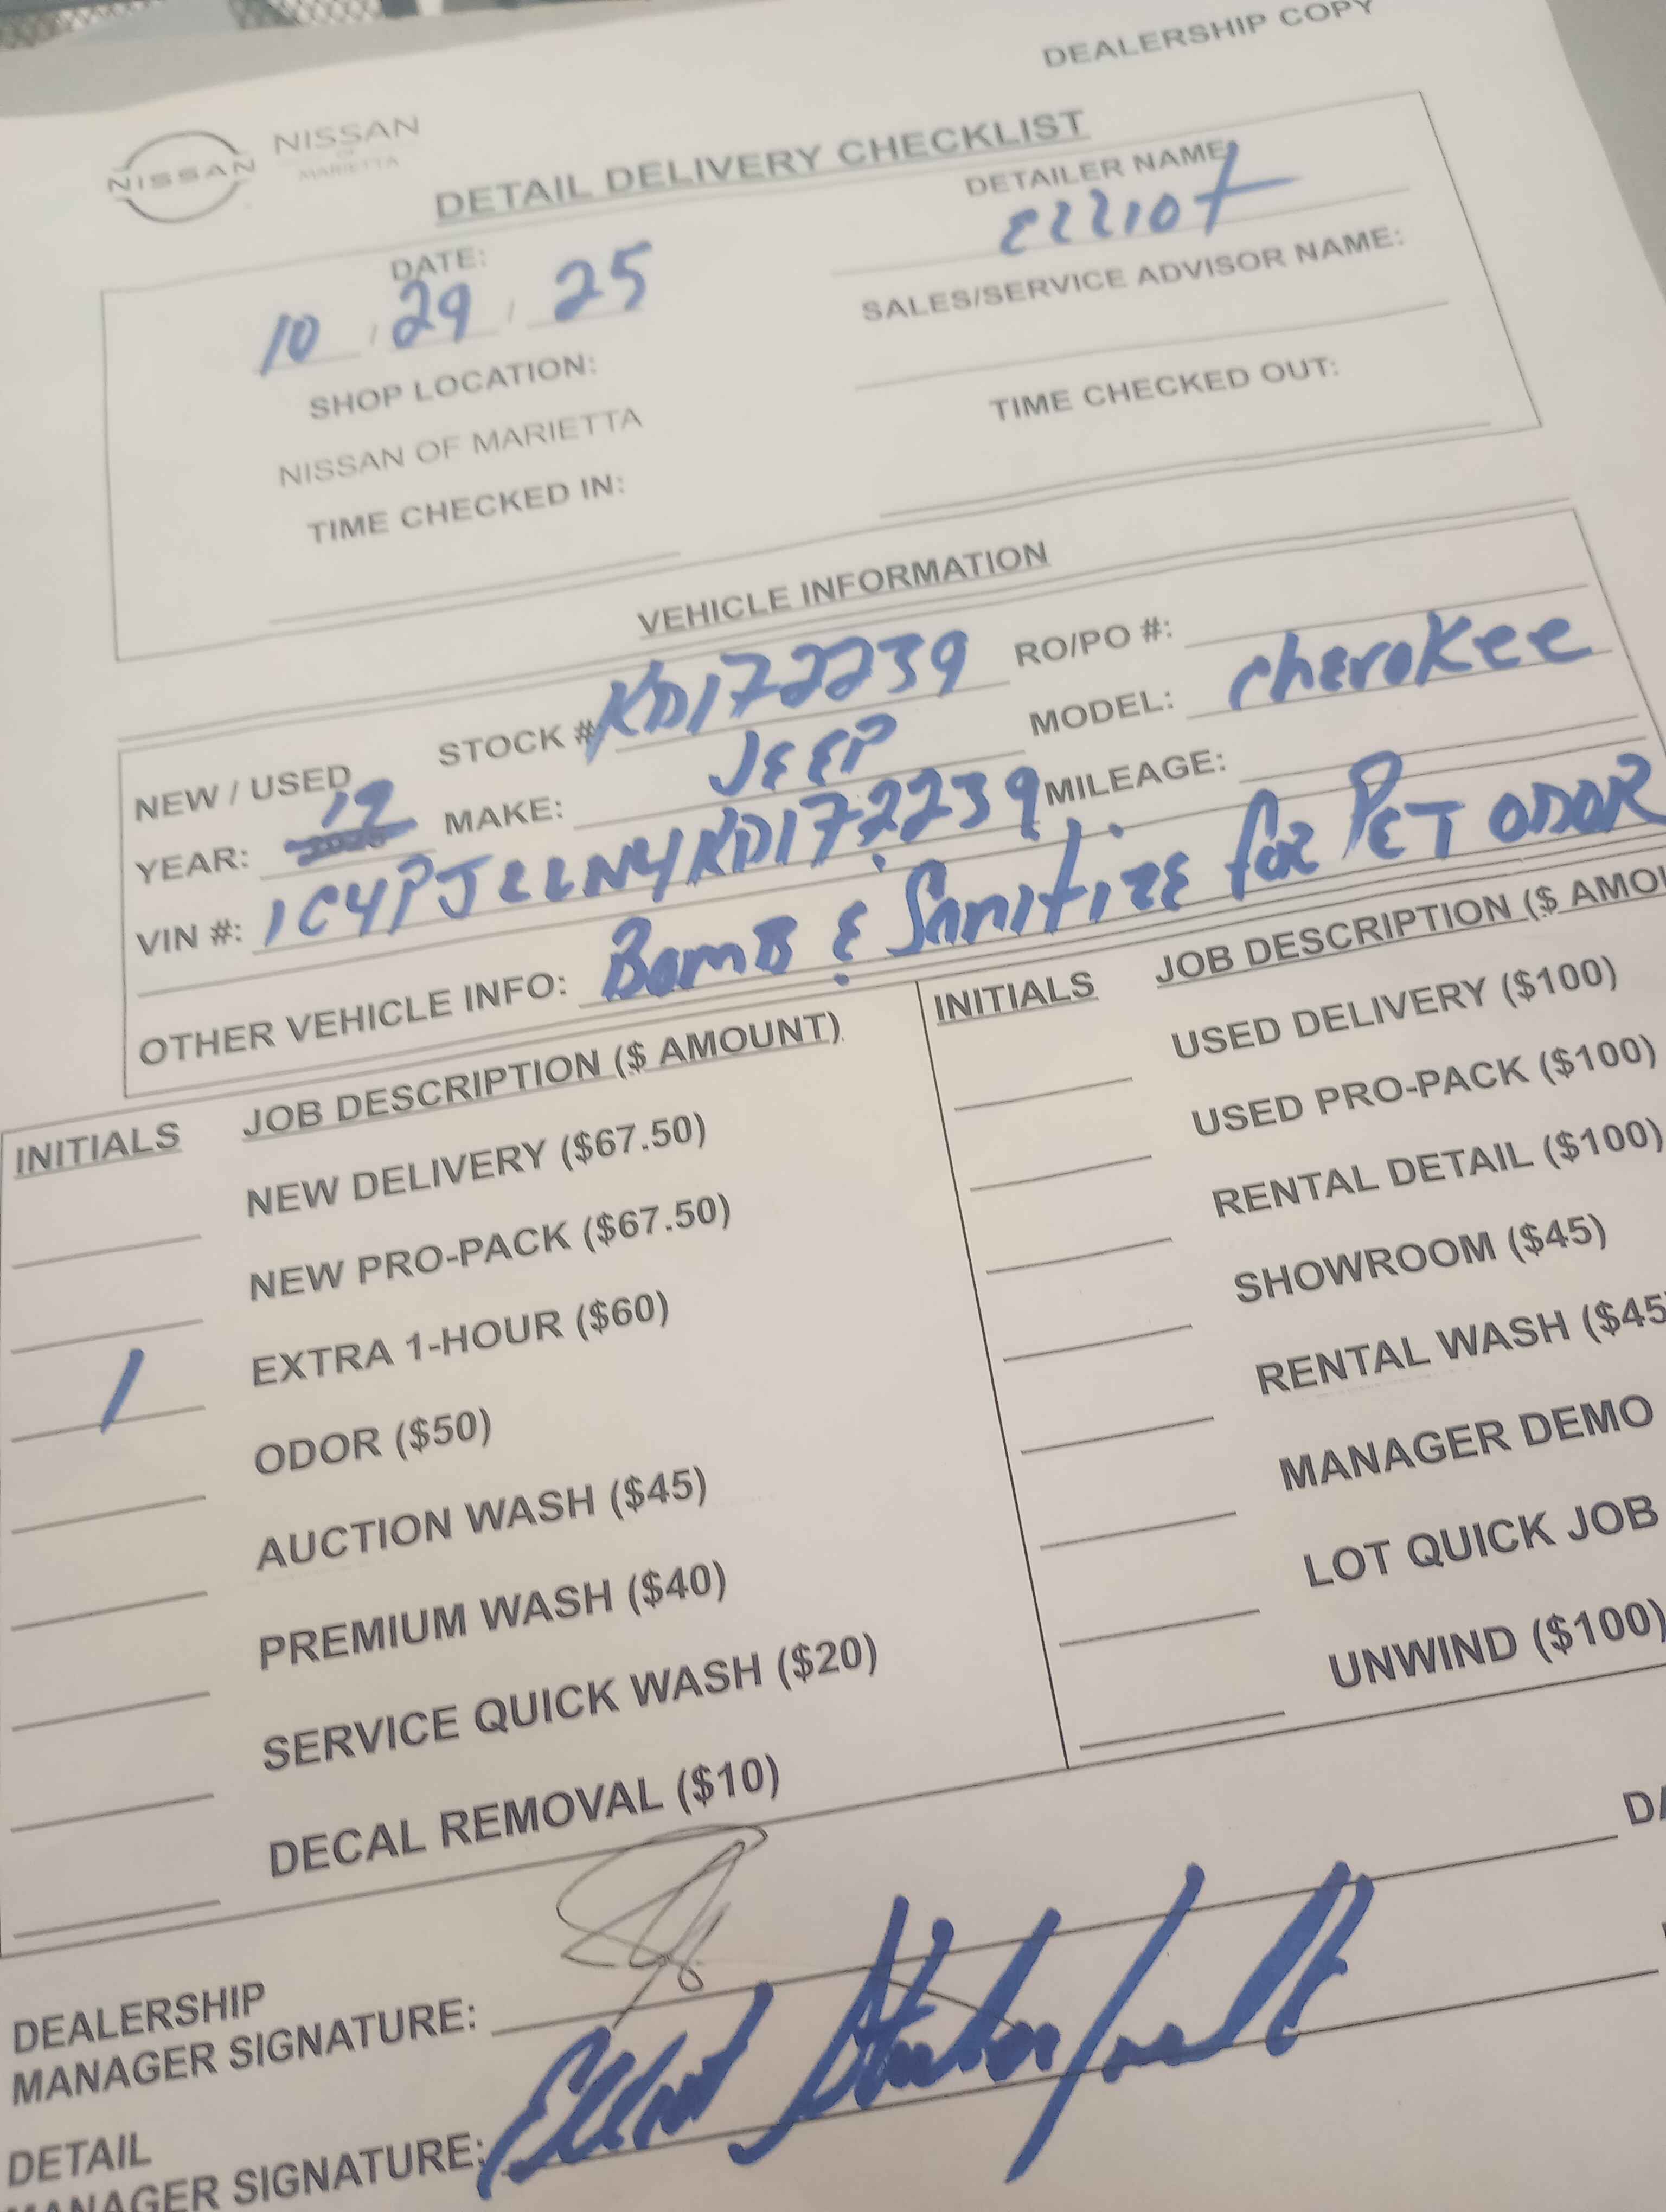 DEALERSHIP COPY
NISSAN
NISSAN
OF
MARIETTA
DETAIL DELIVERY CHECKLIST
DATE:
10 / 29 / 25
SHOP LOCATION:
NISSAN OF MARIETTA
TIME CHECKED IN:
DETAILER NAME:
Elliot
SALES/SERVICE ADVISOR NAME:
TIME CHECKED OUT:
VEHICLE INFORMATION
NEW / USED STOCK # KD172239 RO/PO #:
YEAR: 19 MAKE: JEEP MODEL: cherokee
VIN #: 1C4PJLLN4KD172239 MILEAGE:
OTHER VEHICLE INFO: BomB & Sanitize for PET ODOR
INITIALS JOB DESCRIPTION ($ AMOUNT)
NEW DELIVERY ($67.50)
NEW PRO-PACK ($67.50)
EXTRA 1-HOUR ($60)
/ ODOR ($50)
AUCTION WASH ($45)
PREMIUM WASH ($40)
SERVICE QUICK WASH ($20)
DECAL REMOVAL ($10)
INITIALS JOB DESCRIPTION ($ AMOU
USED DELIVERY ($100)
USED PRO-PACK ($100)
RENTAL DETAIL ($100)
SHOWROOM ($45)
RENTAL WASH ($45
MANAGER DEMO
LOT QUICK JOB
UNWIND ($100)
DEALERSHIP
MANAGER SIGNATURE: DA
DETAIL
MANAGER SIGNATURE: Elliot